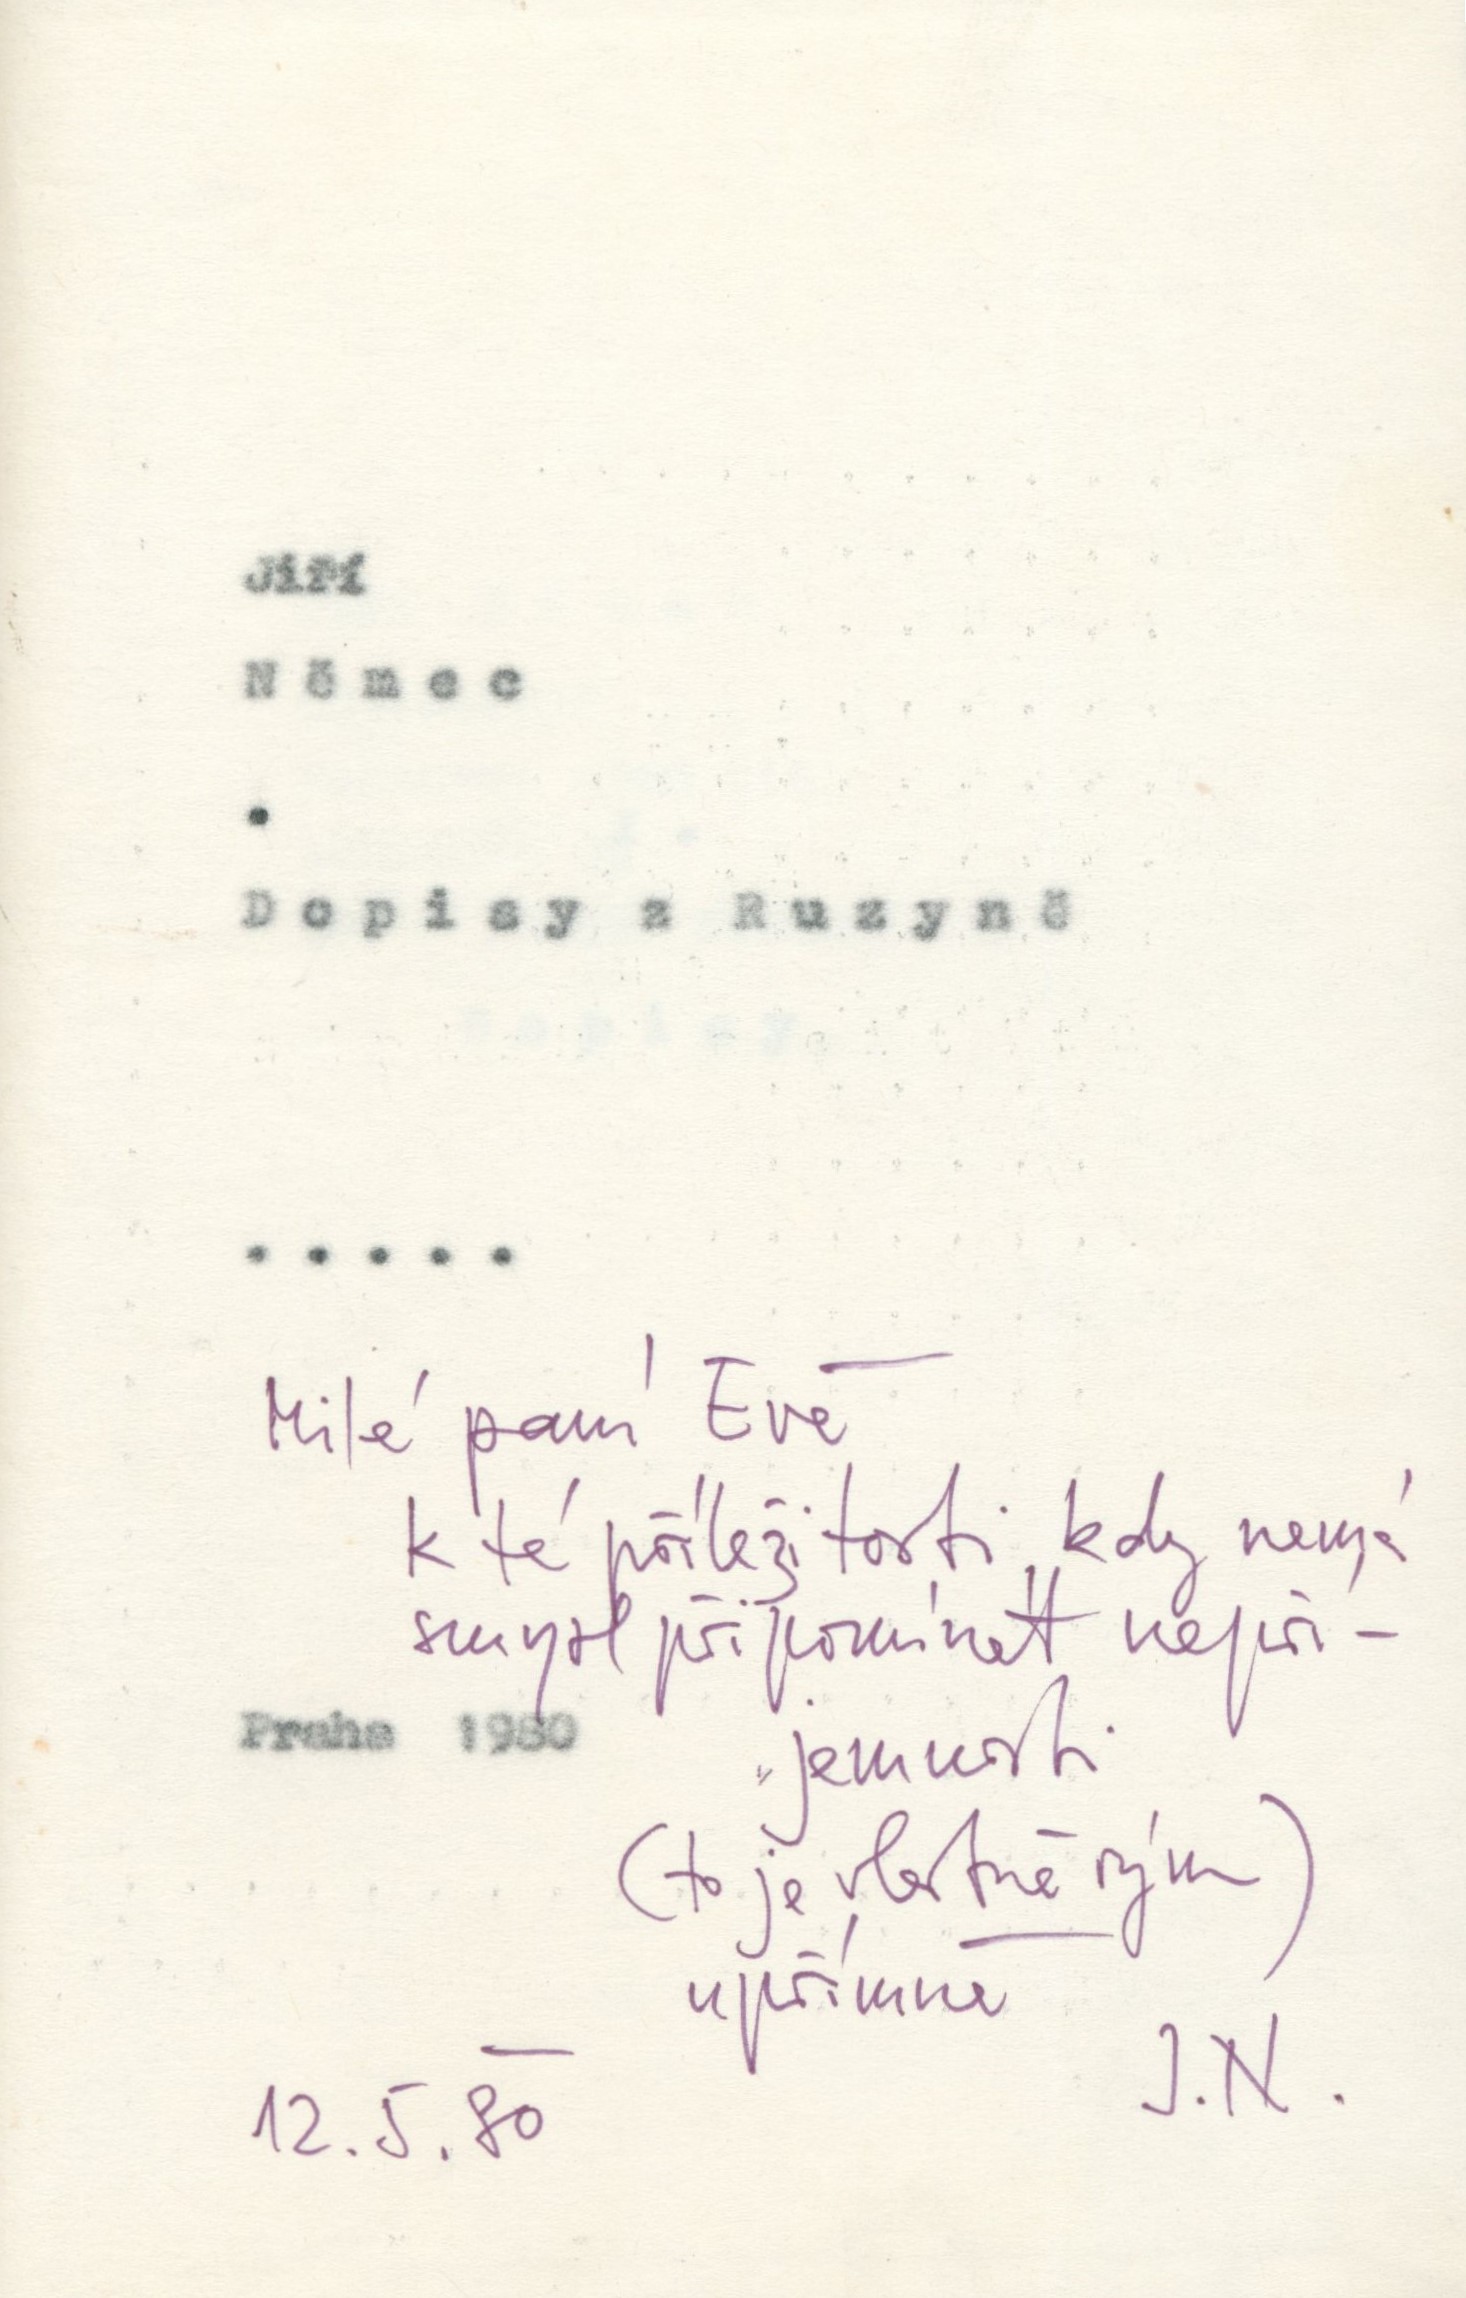 Jiří
Němec
.
Dopisy z Ruzyně
.....
Milé paní Evě
k té příležitosti, kdy nemá
smysl připomínat nepří-
jemnosti
(to je vlastně rým)
upřímně
J.N.
Praha 1980
12.5.80